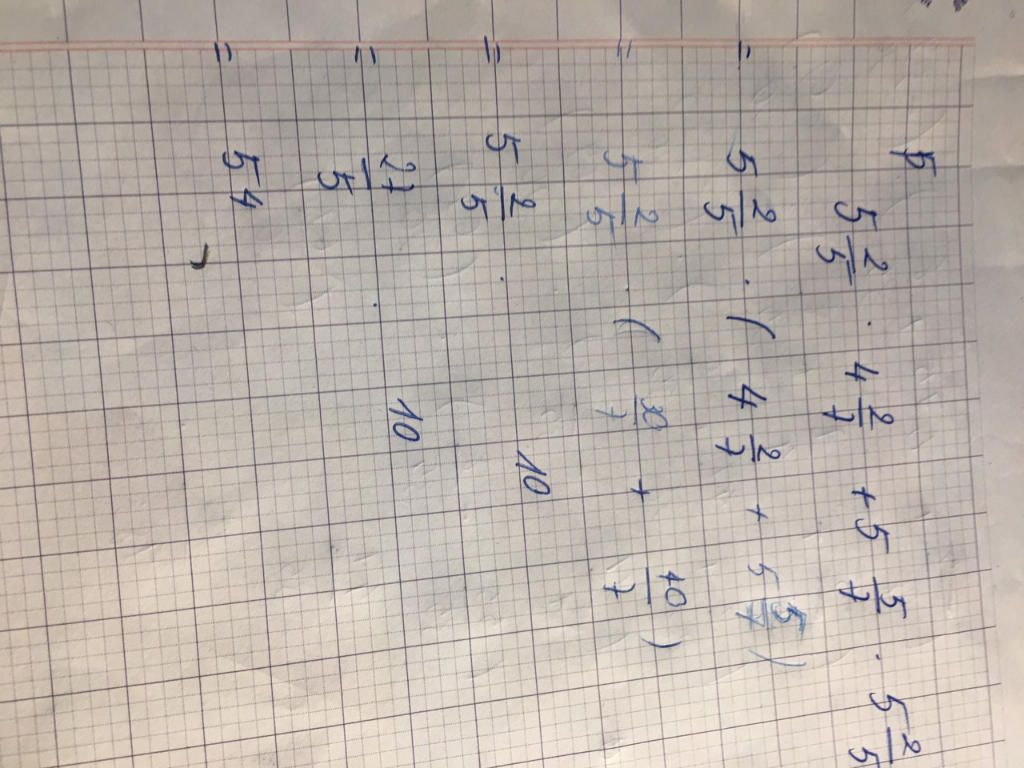 5 2/5 · 4 2/7 + 5 5/7 · 5 2/5
= 5 2/5 · ( 4 2/7 + 5 5/7 )
= 5 2/5 · ( 30/7 + 40/7 )
= 5 2/5 · 10
= 27/5 · 10
= 54